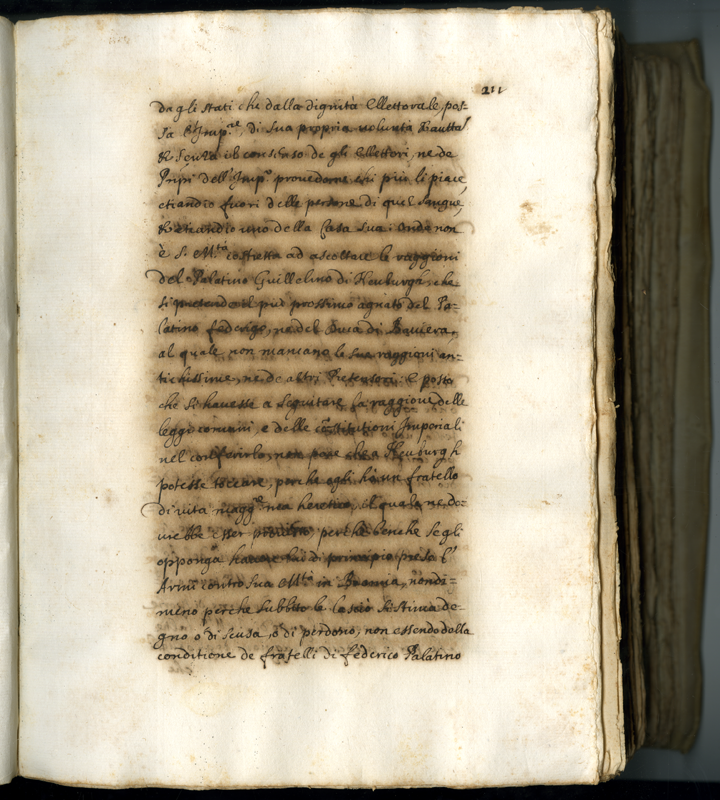 211
da gli stati che dalla dignità Ellettorale, pos-
sa l'Imp.re, di sua propria volontà
& senza il consenso de gli Ellettori, ne de
Prñpi dell'Imp.o provederne chi più li piace,
etiandio fuori delle persone di quel sangue,
& etiandio uno della Casa sua: Onde non
è S. M.tà costretta ad ascoltare le raggioni
del Palatino Guillelmo di Neuburgh, che
si pretende il più prossimo agnato del Pa-
latino federigo, ne del Duca di Baviera,
al quale non mancano le sue raggioni an-
tichissime, ne de altri Pretensori: E posto
che si havesse a seguitare la raggione delle
leggi comuni, e delle cõstitutioni Imperiali
nel conferirlo, non pare che a Neuburgh
potesse toccare, perche egli hà un fratello
di vita magg.re mà heretico, il quale ne de-
urebbe esser perche benche se gli
opponga havere fui di principio preso l'
Armi contro sua M.tà in Boemia, nondi=
meno perche subbito le lasciò si stima de-
gno ò di scusa, ò di perdono, non essendo della
conditione de fratelli di federico Palatino